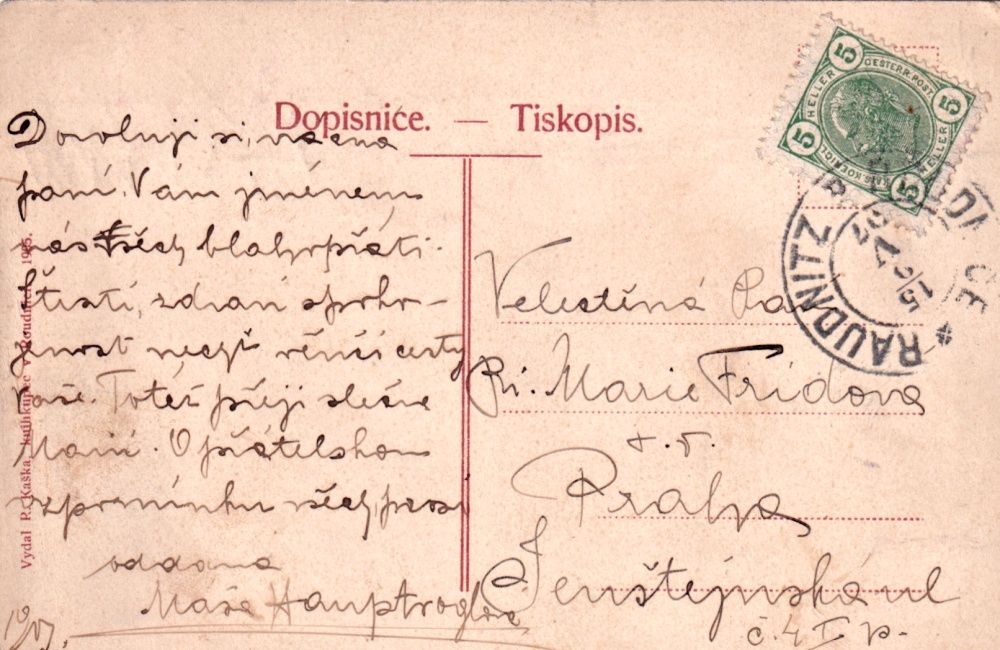 Dopisnice. — Tiskopis.
Dovoluji si, vážená
paní, Vám jménem
nás všech blahopřáti.
Štěstí, zdraví spoko-
jenost nechť věnčí cesty
Vaše. Totéž přeji slečně
Marii. O přátelskou
vzpomínku všech, prosí
oddaná
Máša Hauptvoglová
19/07.
Velectěná Pa
Pí. Marie Frídová
t. č.
Praha
Jenštejnská ul
č. 4 I p.
Vydal R. Kaška, knihkupec v Roudnici. 1905.
5 HELLER 5
OESTERR. POST
5 HELLER 5
RAUDNITZ
15